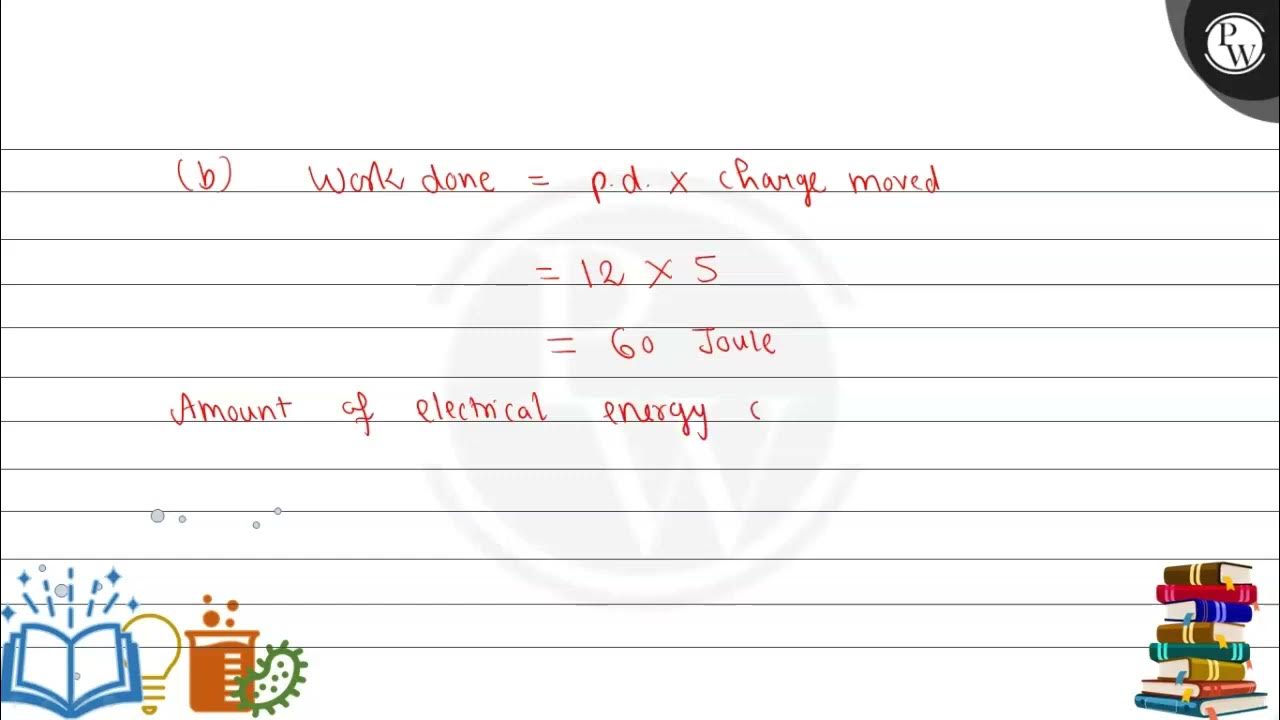 PW
(b) Work done = p.d. x charge moved
= 12 x 5
= 60 Joule
Amount of electrical energy c
PW